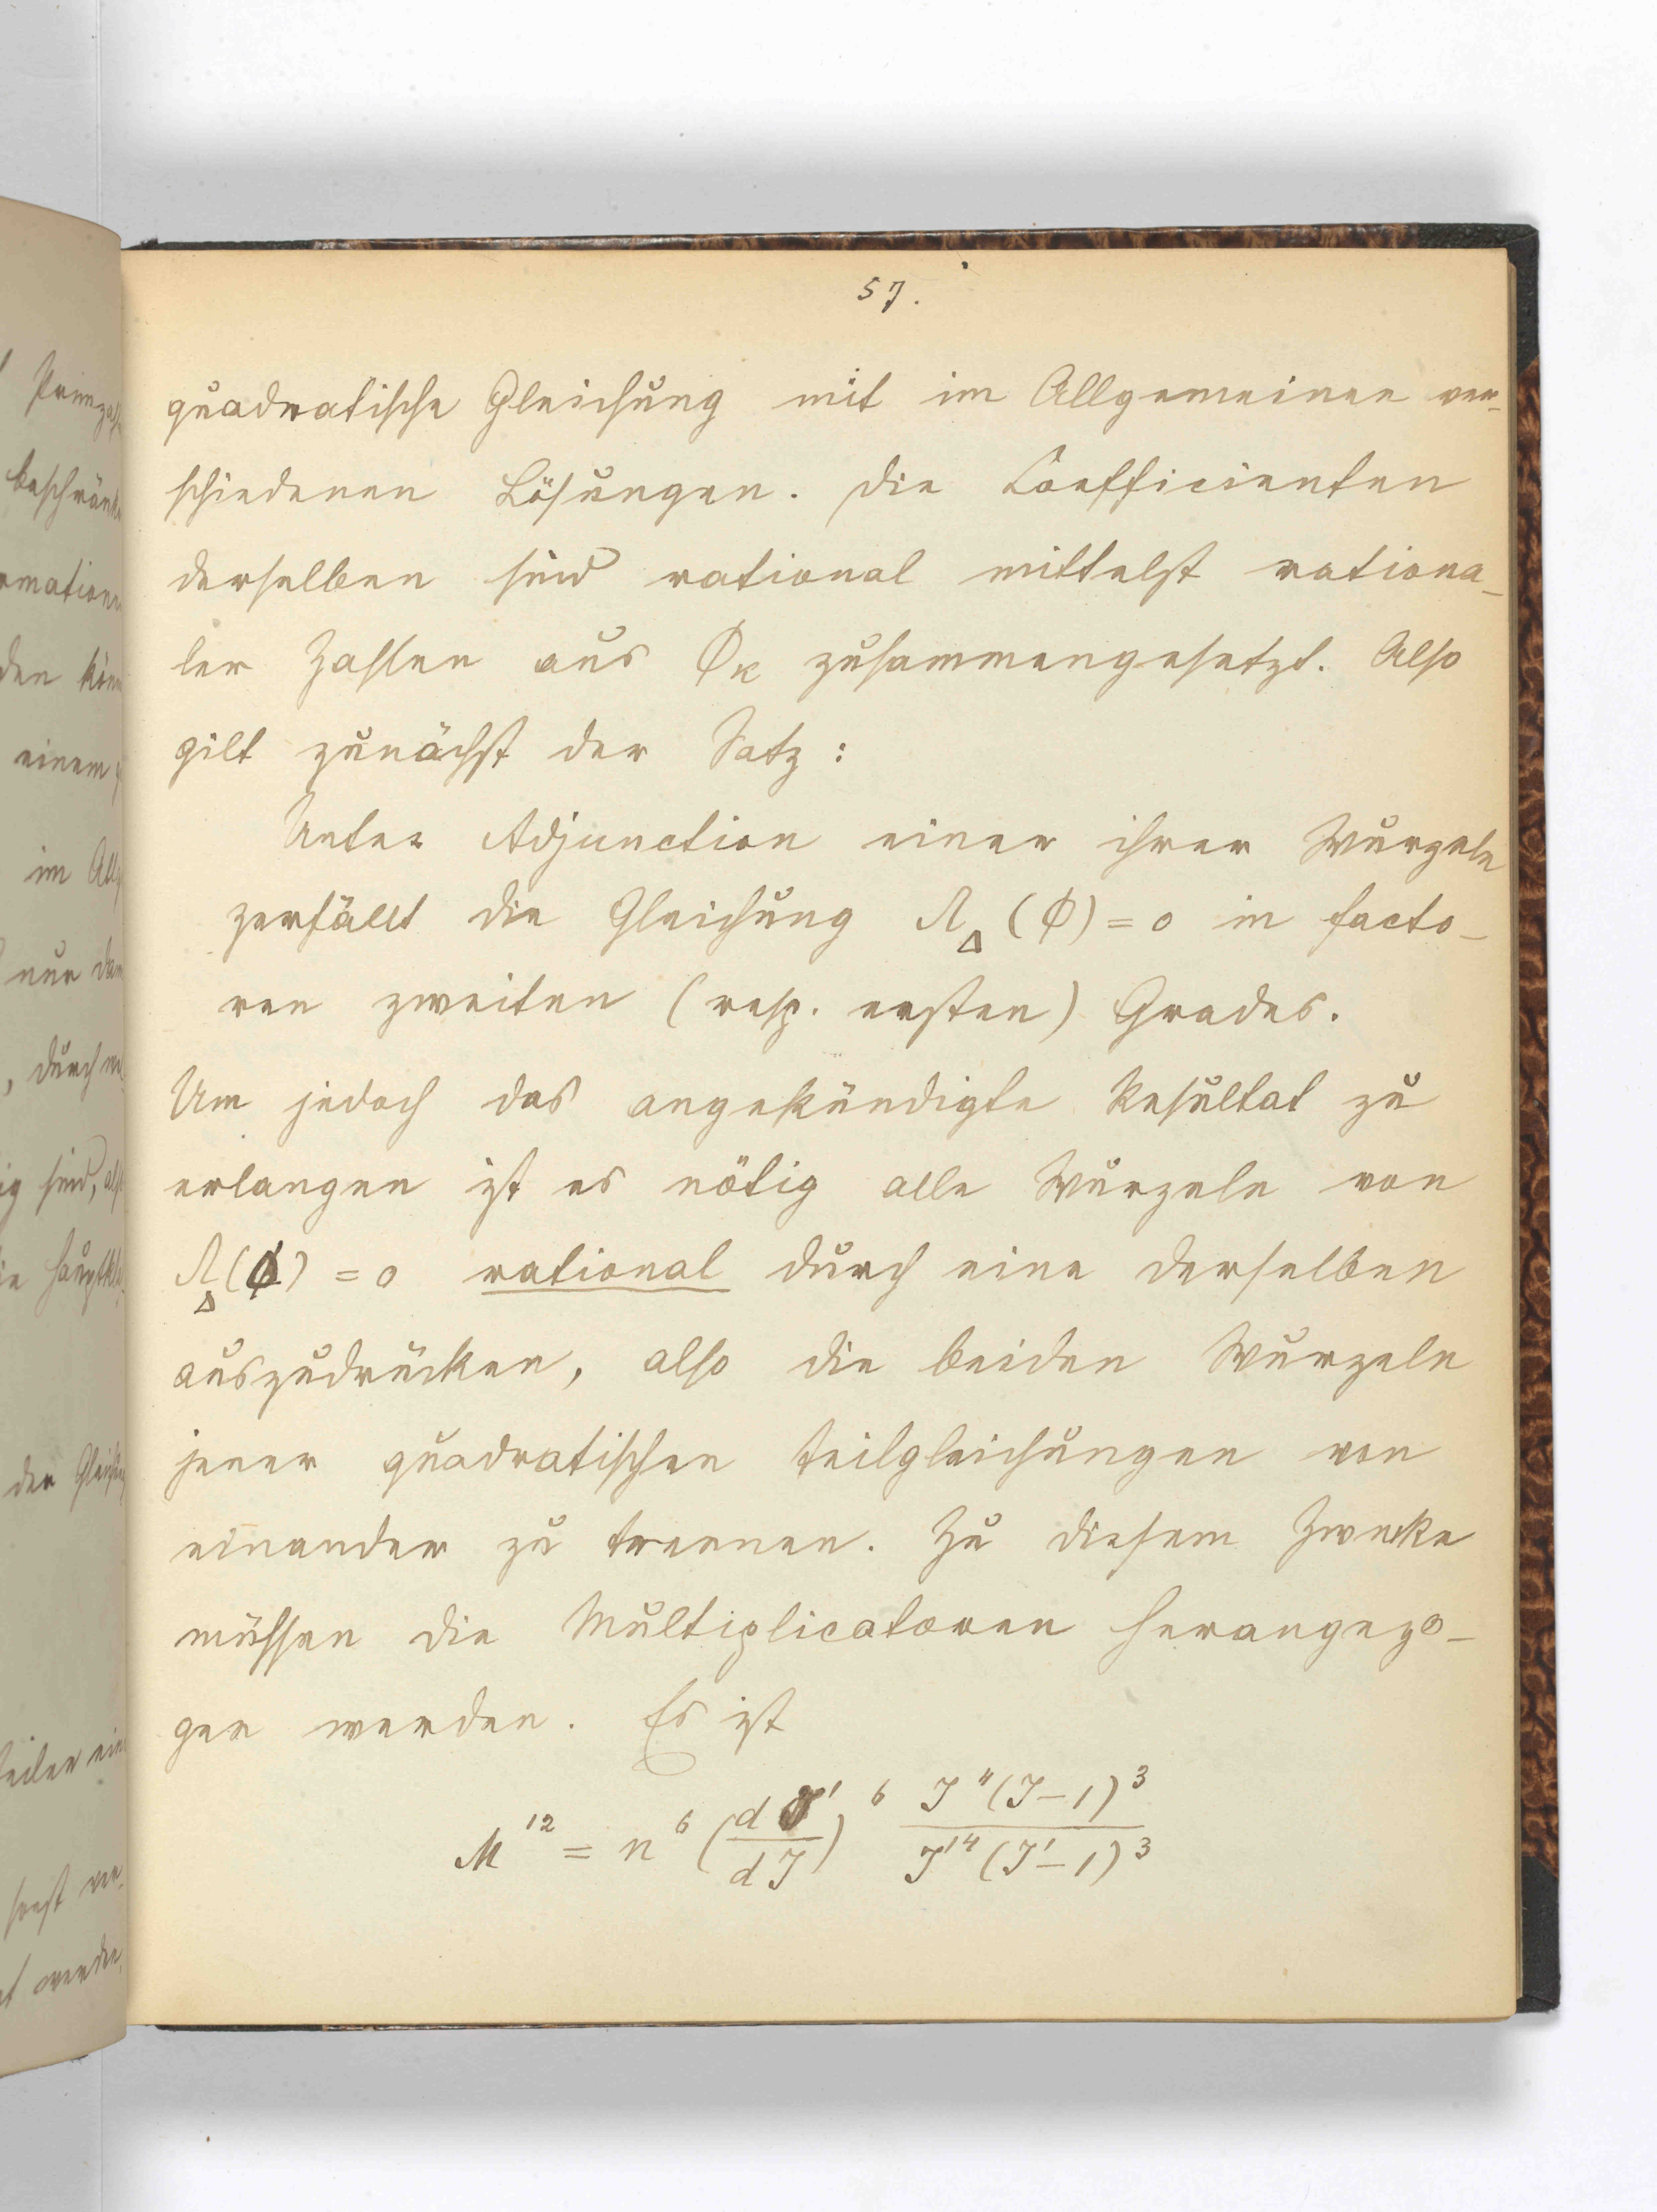 57.
quadratische Gleichung mit im Allgemeinen ver-
schiedenen Lösungen. Die Coefficienten
derselben sind rational mittelst rationa-
ler Zahlen aus Φκ zusammengesetzt. Also
gilt zunächst der Satz:
Unter Adjunction einer ihrer Wurzeln
zerfällt die Gleichung Λ_Δ (ϕ) = 0 in facto-
ren zweiten (resp. ersten) Grades.
Um jedoch das angekündigte Resultat zu
erlangen ist es nötig alle Wurzeln von
Λ_Δ(ϕ) = 0 rational durch eine derselben
auszudrücken, also die beiden Wurzeln
jener quadratischen Teilgleichungen von
einander zu trennen. Zu diesem Zwecke
müssen die Multiplicatoren herangezo-
gen werden. Es ist
M^12 = n^6 (dJ'/dJ)^6 J^4(J-1)^3 / J'^4(J'-1)^3